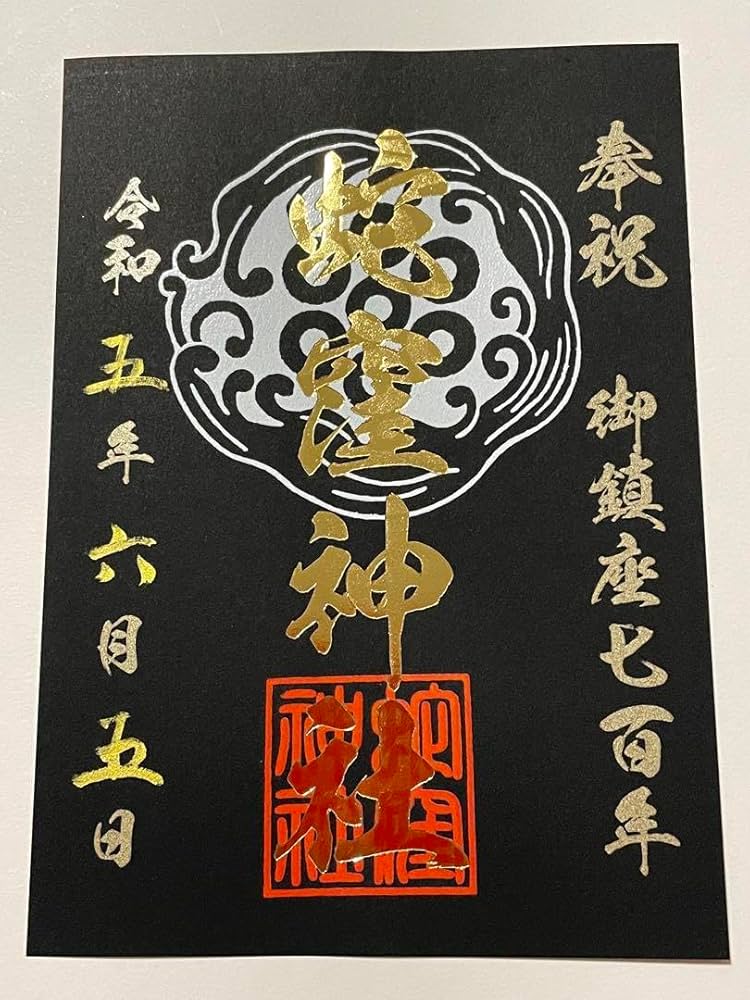 奉祝 御鎮座七百年
蛇窪神社
蛇窪
神社
令和五年六月五日